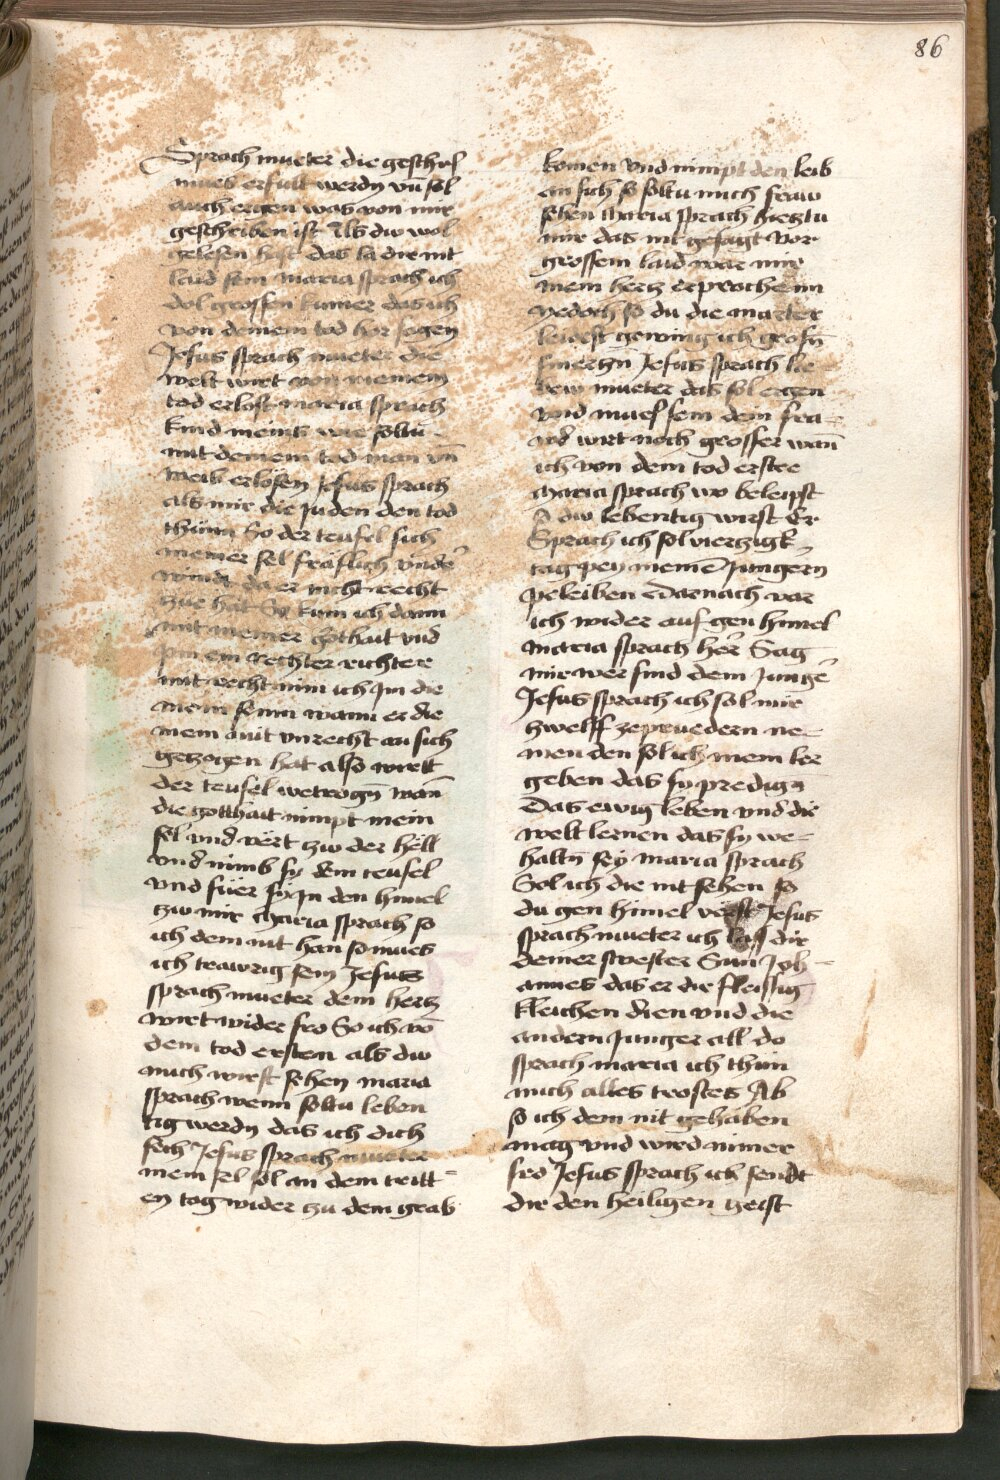 86
Sprach mueter die geschrif
mues erfult werdn vn̄ sol
auch ergen was von mir
geschriben ist Als dw wol
gelesen hast das la dir nit
laid sein maria sprach ich
dol grossen kumer das ich
von deinem tod hor sagen
Jesus sprach mueter die
welt wirt von meinem
tod erlost maria sprach
kind meins wie soltu
mit deinem tod man vn̄
weib erlosen Jesus sprach
als mir die juden den tod
thünn So der teufel sich
meiner sel fräflich vnder
windt da er nicht recht
zue hat So kum ich dann
mit meiner gothait vnd
pin ein rechter richter
mit recht nim ich jm die
mein wann er die
mein mit vnrecht an sich
getzogen hat also wirtt
der teufel wetrogn̄ wan̄
die gotthait nimpt mein
sel vnd vért zw der héll
vnd nimb sy dem teufel
vnd füer sy jn den himel
zw mir Maria sprach so
ich dem nit han so mues
ich trawrig sein Jesus
sprach mueter dein hertz
wirt wider fro So ich vo̅
dem tod ersten als dw
mich wirst sehen maria
sprach wenn soltu leben
tig werdn das ich dich
sech Jesus sprach mueter
mein sel sol an dem tritt=
en tag wider zu dem grab
komen vnd nimpt den leib
an sich so soltu mich fraw
sehen Maria sprach hieztu
mir das nit gesagt vor
grossem laid war mir
mein hertz erprochenn
yedoch so du die marter
leidest gewinn ich grosn̄
smerczn̄ Jesus sprach lie
bew mueter das sol ergen
vnd mues sein dein frea=
wd wirt noch grosser wan̄
ich von dem tod erstee
Maria sprach wo beleipst
so dw lebentig wirst Er
Sprach ich sol viertzigk
tag pey meine̅ Jungern
peleiben Darnach var
ich wider auf gen himel
maria sprach her Sag
mir wer sind dein Junge̅
Jesus sprach ich sol mir
zwelff ze pruedern ne=
men den sol ich mein ler
geben das sy predign̄
Das ewig leben vnd die
welt lernen das sy we=
haltn̄ sey maria sprach
Sol ich die nit sehen so
du gen himel verst Jesus
sprach mueter ich las dir
deiner swester Sun Joh=
annes das er die fleissig
kleichen dien vnd die
andern Junger all do
sprach maria ich thün
mich alles trostes Ab
so ich dein nit gehaben
mag vnd wird nimer
fro Jesus sprach ich sendt
dir den heiligen geist